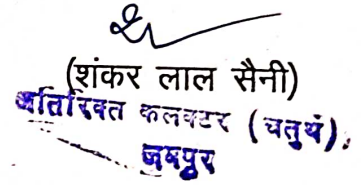 (शंकर लाल सैनी)
अतिरिक्त कलक्टर (चतुर्थ),
जयपुर